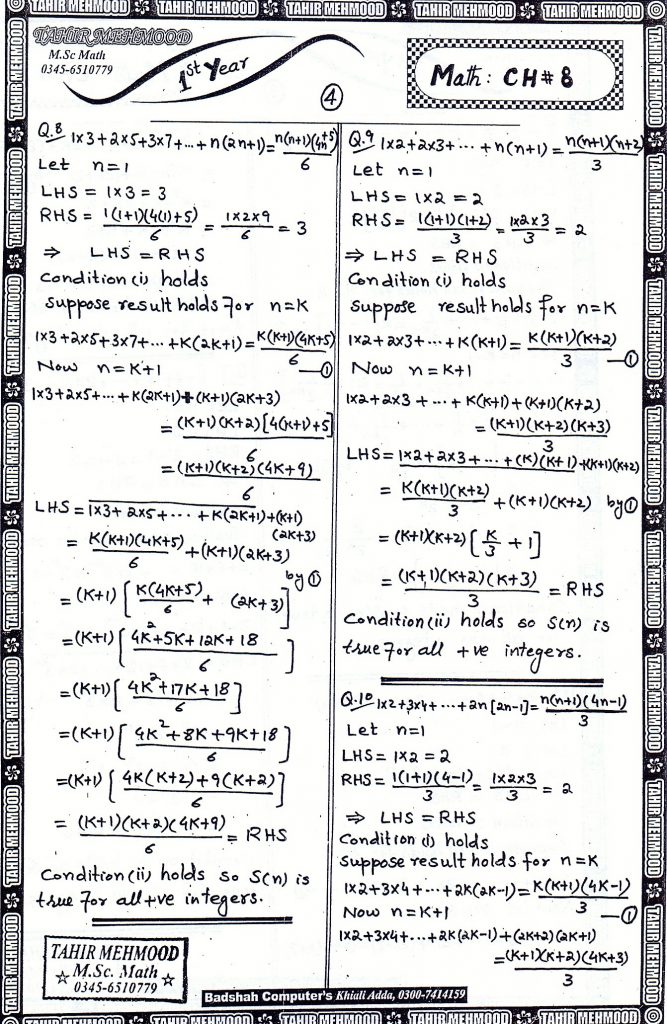 TAHIR MEHMOOD TAHIR MEHMOOD TAHIR MEHMOOD TAHIR MEHMOOD TAHIR MEHMOOD
TAHIR MEHMOOD
M.Sc Math
0345-6510779
1st Year
4
Math: CH# 8
Q.8 1×3+2×5+3×7+...+n(2n+1)=n(n+1)(4n+5)/6
Let n=1
LHS = 1×3 = 3
RHS = 1(1+1)(4(1)+5)/6 = 1×2×9/6 = 3
⇒ LHS = RHS
Condition (i) holds
suppose result holds for n=K
1×3+2×5+3×7+...+K(2K+1)=K(K+1)(4K+5)/6 —①
Now n=K+1
1×3+2×5+...+K(2K+1)+(K+1)(2K+3)
=(K+1)(K+2)[4(K+1)+5]/6
=(K+1)(K+2)(4K+9)/6
LHS=1×3+2×5+...+K(2K+1)+(K+1)(2K+3)
=K(K+1)(4K+5)/6+(K+1)(2K+3) by ①
=(K+1)[K(4K+5)/6+(2K+3)]
=(K+1)[4K²+5K+12K+18/6]
=(K+1)[4K²+17K+18/6]
=(K+1)[4K²+8K+9K+18/6]
=(K+1)[4K(K+2)+9(K+2)/6]
=(K+1)(K+2)(4K+9)/6 = RHS
Condition (ii) holds so S(n) is
true for all +ve integers.
TAHIR MEHMOOD
M.Sc. Math
0345-6510779
Q.9 1×2+2×3+...+n(n+1)=n(n+1)(n+2)/3
Let n=1
LHS = 1×2 = 2
RHS = 1(1+1)(1+2)/3 = 1×2×3/3 = 2
⇒ LHS = RHS
Condition (i) holds
suppose result holds for n=K
1×2+2×3+...+K(K+1)=K(K+1)(K+2)/3 —①
Now n=K+1
1×2+2×3+...+K(K+1)+(K+1)(K+2)
=(K+1)(K+2)(K+3)/3
LHS=1×2+2×3+...+(K)(K+1)+(K+1)(K+2)
=K(K+1)(K+2)/3+(K+1)(K+2) by ①
=(K+1)(K+2)[K/3+1]
=(K+1)(K+2)(K+3)/3 = RHS
Condition (ii) holds so S(n) is
true for all +ve integers.
Q.10 1×2+3×4+...+2n[2n-1]=n(n+1)(4n-1)/3
Let n=1
LHS=1×2=2
RHS=1(1+1)(4-1)/3=1×2×3/3=2
⇒ LHS=RHS
Condition (i) holds
suppose result holds for n=K
1×2+3×4+...+2K(2K-1)=K(K+1)(4K-1)/3 —①
Now n=K+1
1×2+3×4+...+2K(2K-1)+(2K+2)(2K+1)
=(K+1)(K+2)(4K+3)/3
Badshah Computer's Khiali Adda, 0300-7414159
TAHIR MEHMOOD TAHIR MEHMOOD TAHIR MEHMOOD TAHIR MEHMOOD TAHIR MEHMOOD